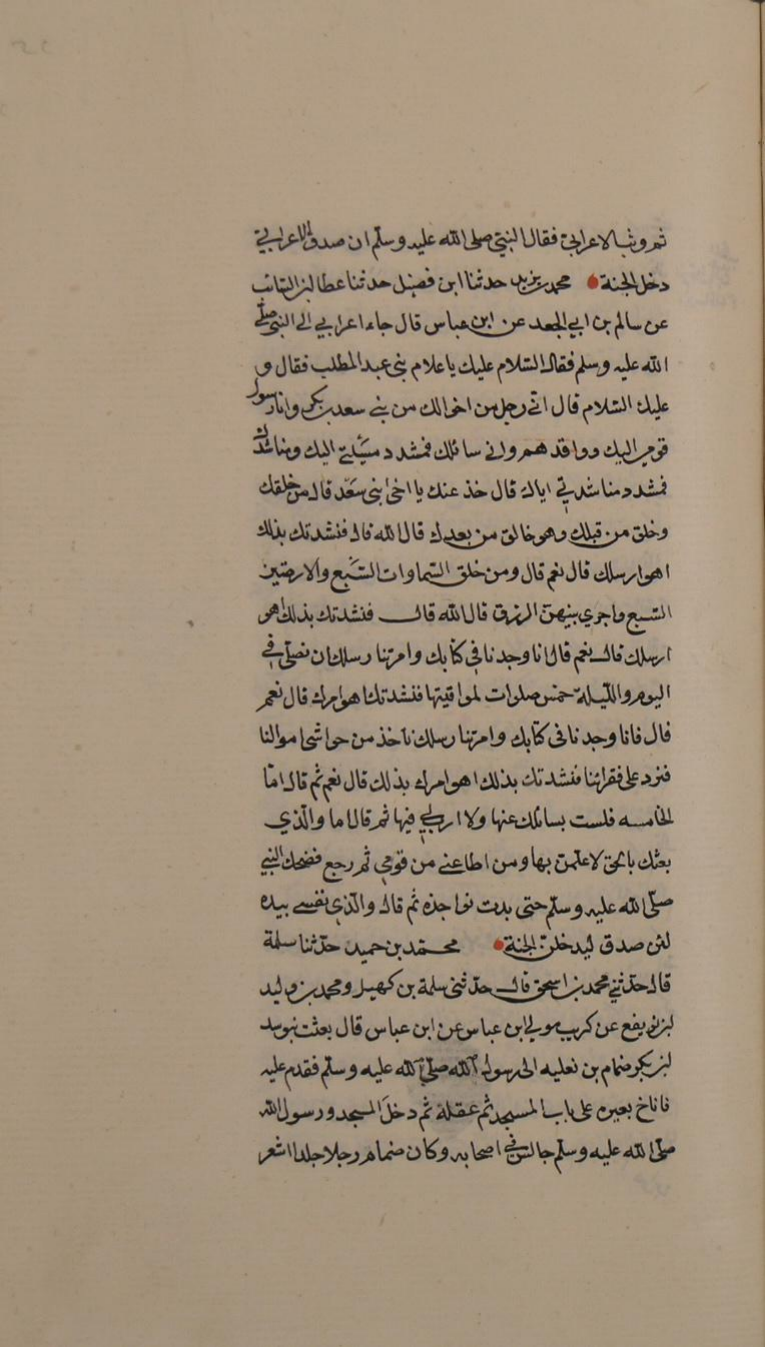 ثم وثب الاعرابي فقال النبي صلى الله عليه وسلم ان صدق الاعرابي
دخل الجنة محمد بن يزيد حدثنا ابن فضيل حدثنا عطا بن السائب
عن سالم بن ابي الجعد عن ابن عباس قال جاء اعرابي الى النبي صلى
الله عليه وسلم فقال السلام عليك يا غلام بني عبد المطلب فقال و
عليك السلام قال اني رجل من اخوالك من بني سعد بن بكر وانا رسول
قومي اليك ووافدهم واني سائلك فمشدد مسئلتي اليك ومناشدك
فمشدد مناشدتي اياك قال خذ عنك يا اخي بني سعد قال من خلقك
وخلق من قبلك وهو خالق من بعدك قال الله قال فنشدتك بذلك
اهو ارسلك قال نعم قال ومن خلق السماوات السبع والارضين
السبع واجري بينهن الرزق قال الله قال فنشدتك بذلك اهو
ارسلك قال نعم قال انا وجدنا في كتابك وامرتنا رسلك ان نصلي في
اليوم والليلة خمس صلوات لمواقيتها فنشدتك اهو امرك قال نعم
قال فانا وجدنا في كتابك وامرتنا رسلك ناخذ من حواشي اموالنا
فنرد على فقرائنا فنشدتك بذلك اهو امرك بذلك قال نعم ثم قال اما
الخامسه فلست بسائلك عنها ولا ارب لي فيها ثم قال اما والذي
بعثك بالحق لاعملن بها ومن اطاعني من قومي ثم رجع فضحك النبي
صلى الله عليه وسلم حتى بدت نواجذه ثم قال والذي نفسي بيده
لئن صدق ليدخلن الجنة محمد بن حميد حدثنا سلمة
قال حدثني محمد بن اسحق قال حدثني سلمة بن كهيل ومحمد بن وليد
بن نويفع عن كريب مولى ابن عباس عن ابن عباس قال بعثت بنو سعد
بن بكر ضمام بن ثعلبه الى رسول الله صلى الله عليه وسلم فقدم عليه
فاناخ بعيره على باب المسجد ثم عقله ثم دخل المسجد ورسول الله
صلى الله عليه وسلم جالس في اصحابه وكان ضمام رجلا جلدا اشعر